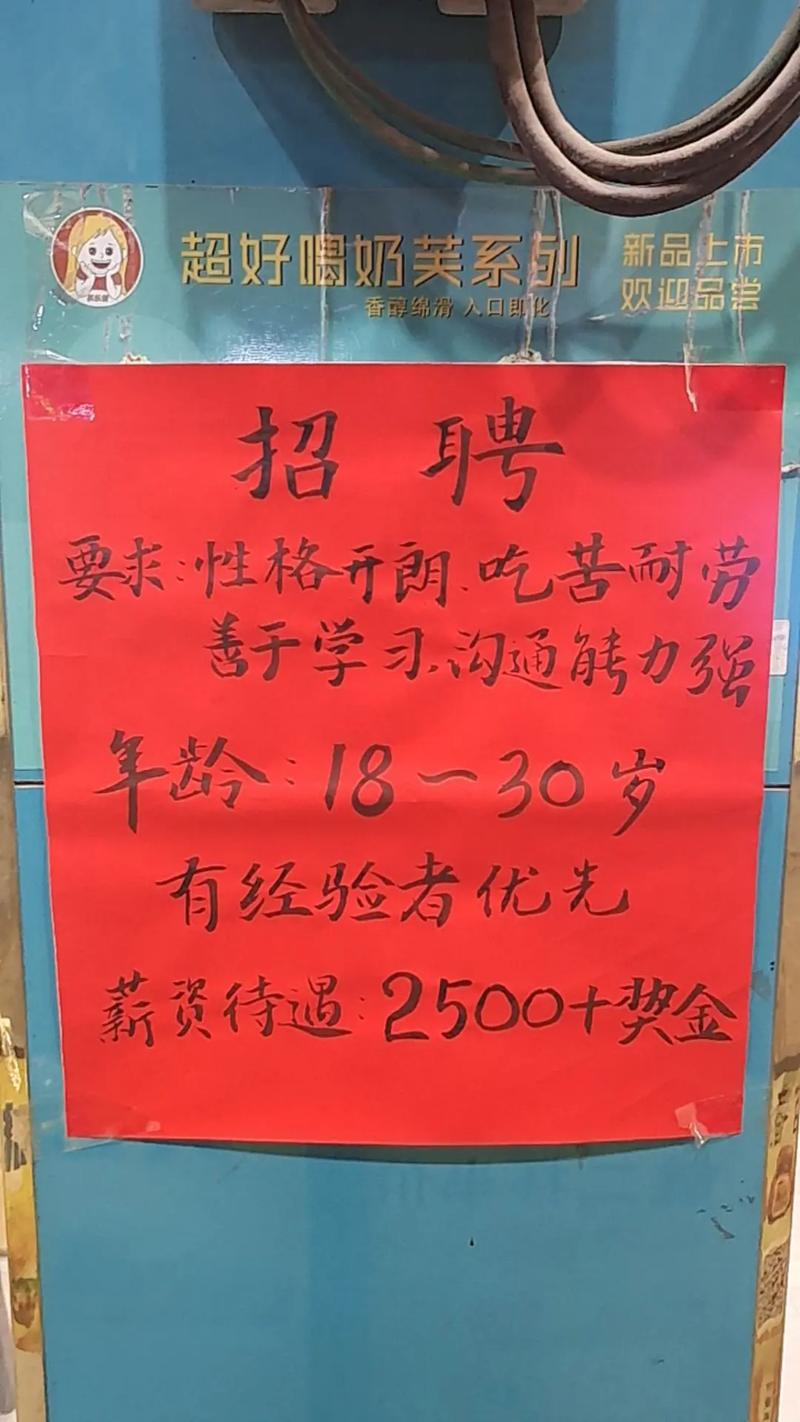 超好喝奶芙系列
新品上市
香醇绵滑 入口即化
欢迎品尝
招聘
要求:性格开朗、吃苦耐劳
善于学习、沟通能力强
年龄:18一30岁
有经验者优先
薪资待遇:2500+奖金